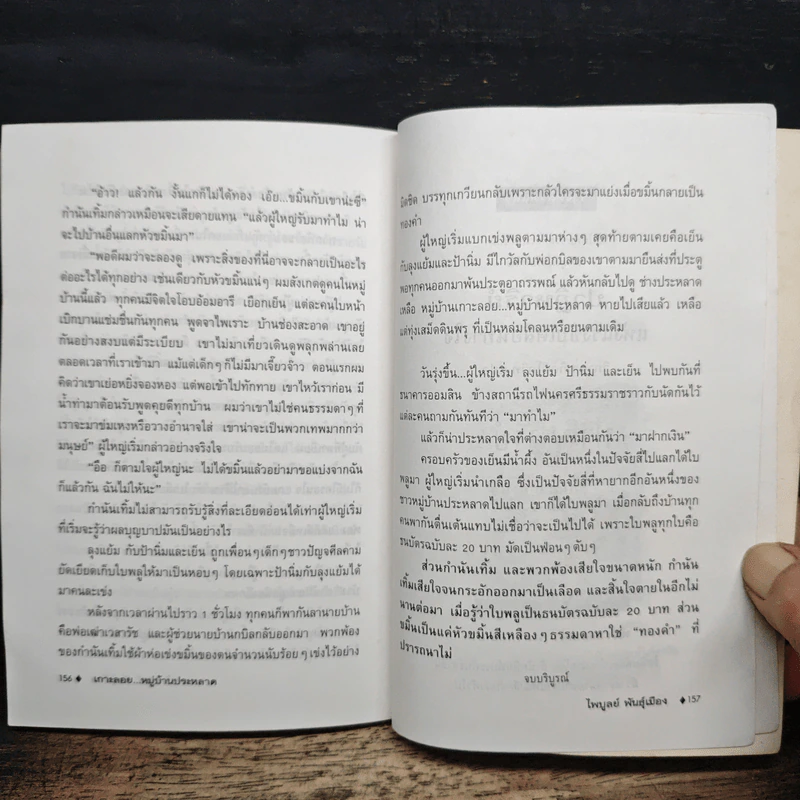 “อ้าว! แล้วกัน งั้นแกก็ไม่ได้ทอง เอ๊ย...ขมิ้นกับเขาน่ะซี”
กำนันเทิ้มกล่าวเหมือนจะเสียดายแทน “แล้วผู้ใหญ่รับมาทำไม น่า
จะไปบ้านอื่นแลกหัวขมิ้นมา”
“พอดีผมว่าจะลองดู เพราะสิ่งของที่นี่อาจจะกลายเป็นอะไร
ต่ออะไรได้ทุกอย่าง เช่นเดียวกับหัวขมิ้นแน่ๆ ผมสังเกตดูคนในหมู่
บ้านนี้แล้ว ทุกคนมีจิตใจโอบอ้อมอารี เยือกเย็น แต่ละคนใบหน้า
เบิกบานแช่มชื่นกันทุกคน พูดจาไพเราะ บ้านช่องสะอาด เขาอยู่
กันอย่างสงบแต่มีระเบียบ เขาไม่มาเที่ยวเดินดูพลุกพล่านเลย
ตลอดเวลาที่เราเข้ามา แม้แต่เด็กๆ ก็ไม่มีมาเจี๊ยวจ๊าว ตอนแรกผม
คิดว่าเขาเย่อหยิ่งจองหอง แต่พอเข้าไปทักทาย เขาไหว้เราก่อน มี
น้ำท่ามาต้อนรับพูดคุยดีทุกบ้าน ผมว่าเขาไม่ใช่คนธรรมดาๆ ที่
เราจะมาข่มเหงหรือวางอำนาจใส่ เขาน่าจะเป็นพวกเทพมากกว่า
มนุษย์” ผู้ใหญ่เริ่มกล่าวอย่างจริงใจ
“อือ ก็ตามใจผู้ใหญ่นะ ไม่ได้ขมิ้นแล้วอย่ามาขอแบ่งจากฉัน
ก็แล้วกัน ฉันไม่ให้นะ”
กำนันเทิ้มไม่สามารถรับรู้สิ่งที่ละเอียดอ่อนได้เท่าผู้ใหญ่เริ่ม
ที่เริ่มจะรู้ว่าผลบุญบาปมันเป็นอย่างไร
ลุงแย้ม กับป้านิ่มและเย็น ถูกเพื่อนๆ เด็กๆ ชาวปัญจศีลคาม
ยัดเยียดเก็บใบพลูให้มาเป็นหอบๆ โดยเฉพาะป้านิ่มกับลุงแย้มได้
มาคนละเข่ง
หลังจากเวลาผ่านไปราว 1 ชั่วโมง ทุกคนก็พากันลานายบ้าน
คือพ่อเฒ่าเวสารัช และผู้ช่วยนายบ้านกบิลกลับออกมา พวกพ้อง
ของกำนันเทิ้มใช้ผ้าห่อเข่งขมิ้นของตนจำนวนนับร้อยๆ เข่งไว้อย่าง
156 ♦ เกาะลอย...หมู่บ้านประหลาด
มิดชิด บรรทุกเกวียนกลับเพราะกลัวใครจะมาแย่งเมื่อขมิ้นกลายเป็น
ทองคำ
ผู้ใหญ่เริ่มแบกเข่งพลูตามมาห่างๆ สุดท้ายตามเคยคือเย็น
กับลุงแย้มและป้านิ่ม มีไกวัลกับพ่อกบิลของเขาตามมายืนส่งที่ประตู
พอทุกคนออกมาพ้นประตูอาถรรพณ์ แล้วหันกลับไปดู ช่างประหลาด
เหลือ หมู่บ้านเกาะลอย...หมู่บ้านประหลาด หายไปเสียแล้ว เหลือ
แต่ทุ่งเสม็ดดินพรุ ที่เป็นหล่มโคลนหรือยนตามเดิม
วันรุ่งขึ้น...ผู้ใหญ่เริ่ม ลุงแย้ม ป้านิ่ม และเย็น ไปพบกันที่
ธนาคารออมสิน ข้างสถานีรถไฟนครศรีธรรมราชราวกับนัดกันไว้
แต่ละคนถามกันทันทีว่า “มาทำไม”
แล้วก็น่าประหลาดใจที่ต่างตอบเหมือนกันว่า “มาฝากเงิน”
ครอบครัวของเย็นมีน้ำผึ้ง อันเป็นหนึ่งในปัจจัยสี่ไปแลกได้ใบ
พลูมา ผู้ใหญ่เริ่มนำเกลือ ซึ่งเป็นปัจจัยสี่ที่หายากอีกอันหนึ่งของ
ชาวหมู่บ้านประหลาดไปแลก เขาก็ได้ใบพลูมา เมื่อกลับถึงบ้านทุก
คนพากันตื่นเต้นแทบไม่เชื่อว่าจะเป็นไปได้ เพราะใบพลูทุกใบคือ
ธนบัตรฉบับละ 20 บาท มัดเป็นฟ่อนๆ ตับๆ
ส่วนกำนันเทิ้ม และพวกพ้องเสียใจขนาดหนัก กำนัน
เทิ้มเสียใจจนกระอักออกมาเป็นเลือด และสิ้นใจตายในอีกไม่
นานต่อมา เมื่อรู้ว่าใบพลูเป็นธนบัตรฉบับละ 20 บาท ส่วน
ขมิ้นเป็นแค่หัวขมิ้นสีเหลืองๆ ธรรมดาหาใช่ “ทองคำ” ที่
ปรารถนาไม่
จบบริบูรณ์
ไพบูลย์ พันธุ์เมือง ♦ 157